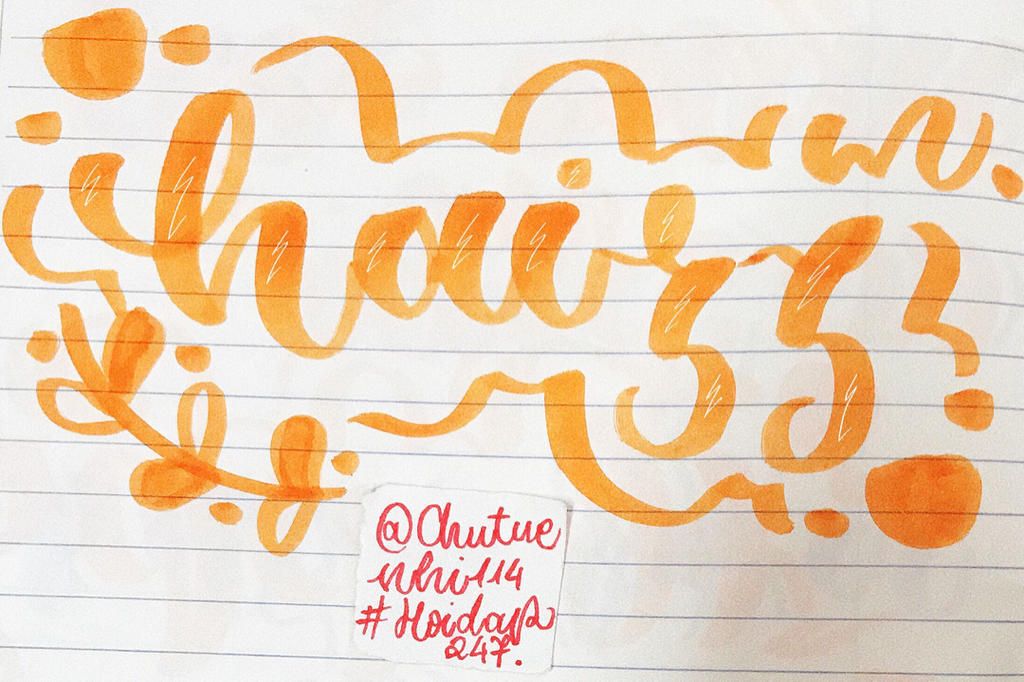 hairzz
@Chutue
nhi114
#Hoidap
247.